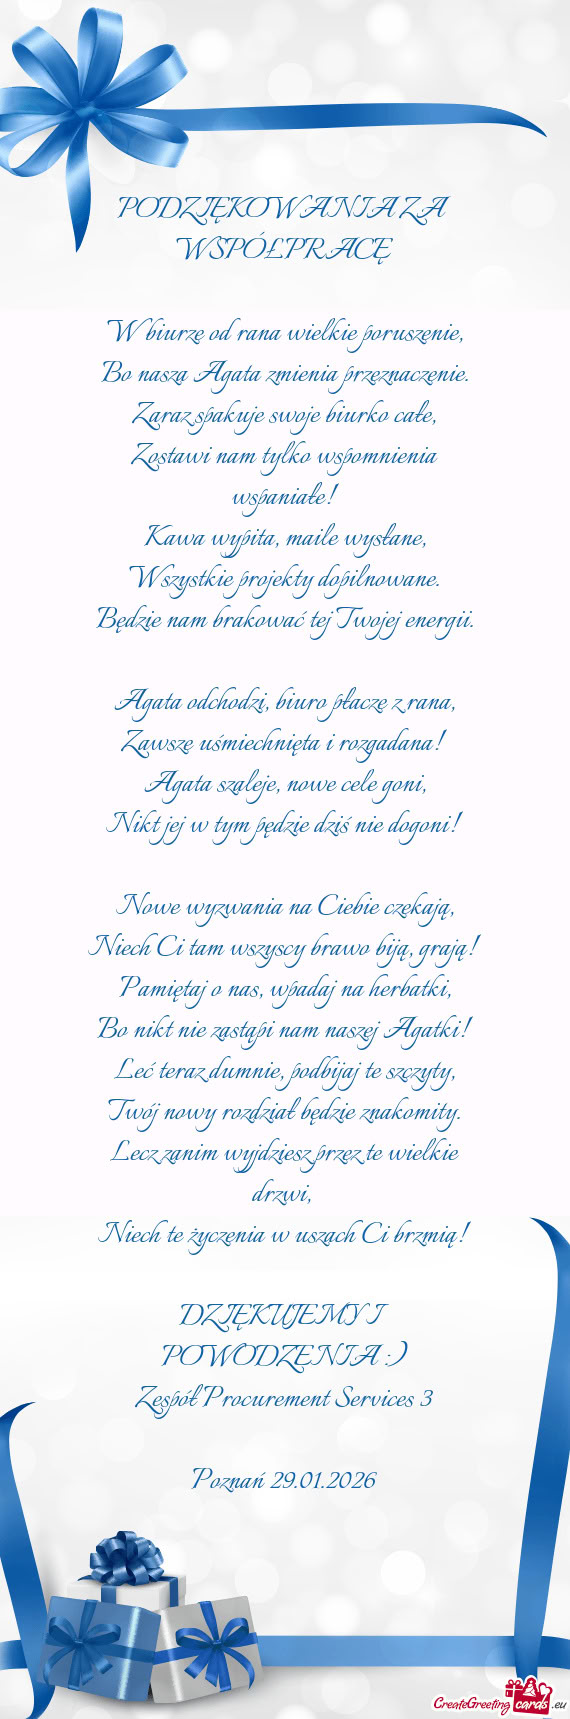 PODZIĘKOWANIA ZA
WSPÓŁPRACĘ
W biurze od rana wielkie poruszenie,
Bo nasza Agata zmienia przeznaczenie.
Zaraz spakuje swoje biurko całe,
Zostawi nam tylko wspomnienia
wspaniałe!
Kawa wypita, maile wysłane,
Wszystkie projekty dopilnowane.
Będzie nam brakować tej Twojej energii.
Agata odchodzi, biuro płacze z rana,
Zawsze uśmiechnięta i rozgadana!
Agata szaleje, nowe cele goni,
Nikt jej w tym pędzie dziś nie dogoni!
Nowe wyzwania na Ciebie czekają,
Niech Ci tam wszyscy brawo biją, grają!
Pamiętaj o nas, wpadaj na herbatki,
Bo nikt nie zastąpi nam naszej Agatki!
Leć teraz dumnie, podbijaj te szczyty,
Twój nowy rozdział będzie znakomity.
Lecz zanim wyjdziesz przez te wielkie
drzwi,
Niech te życzenia w uszach Ci brzmią!
DZIĘKUJEMY I
POWODZENIA :)
Zespół Procurement Services 3
Poznań 29.01.2026
CreateGreeting cards .eu